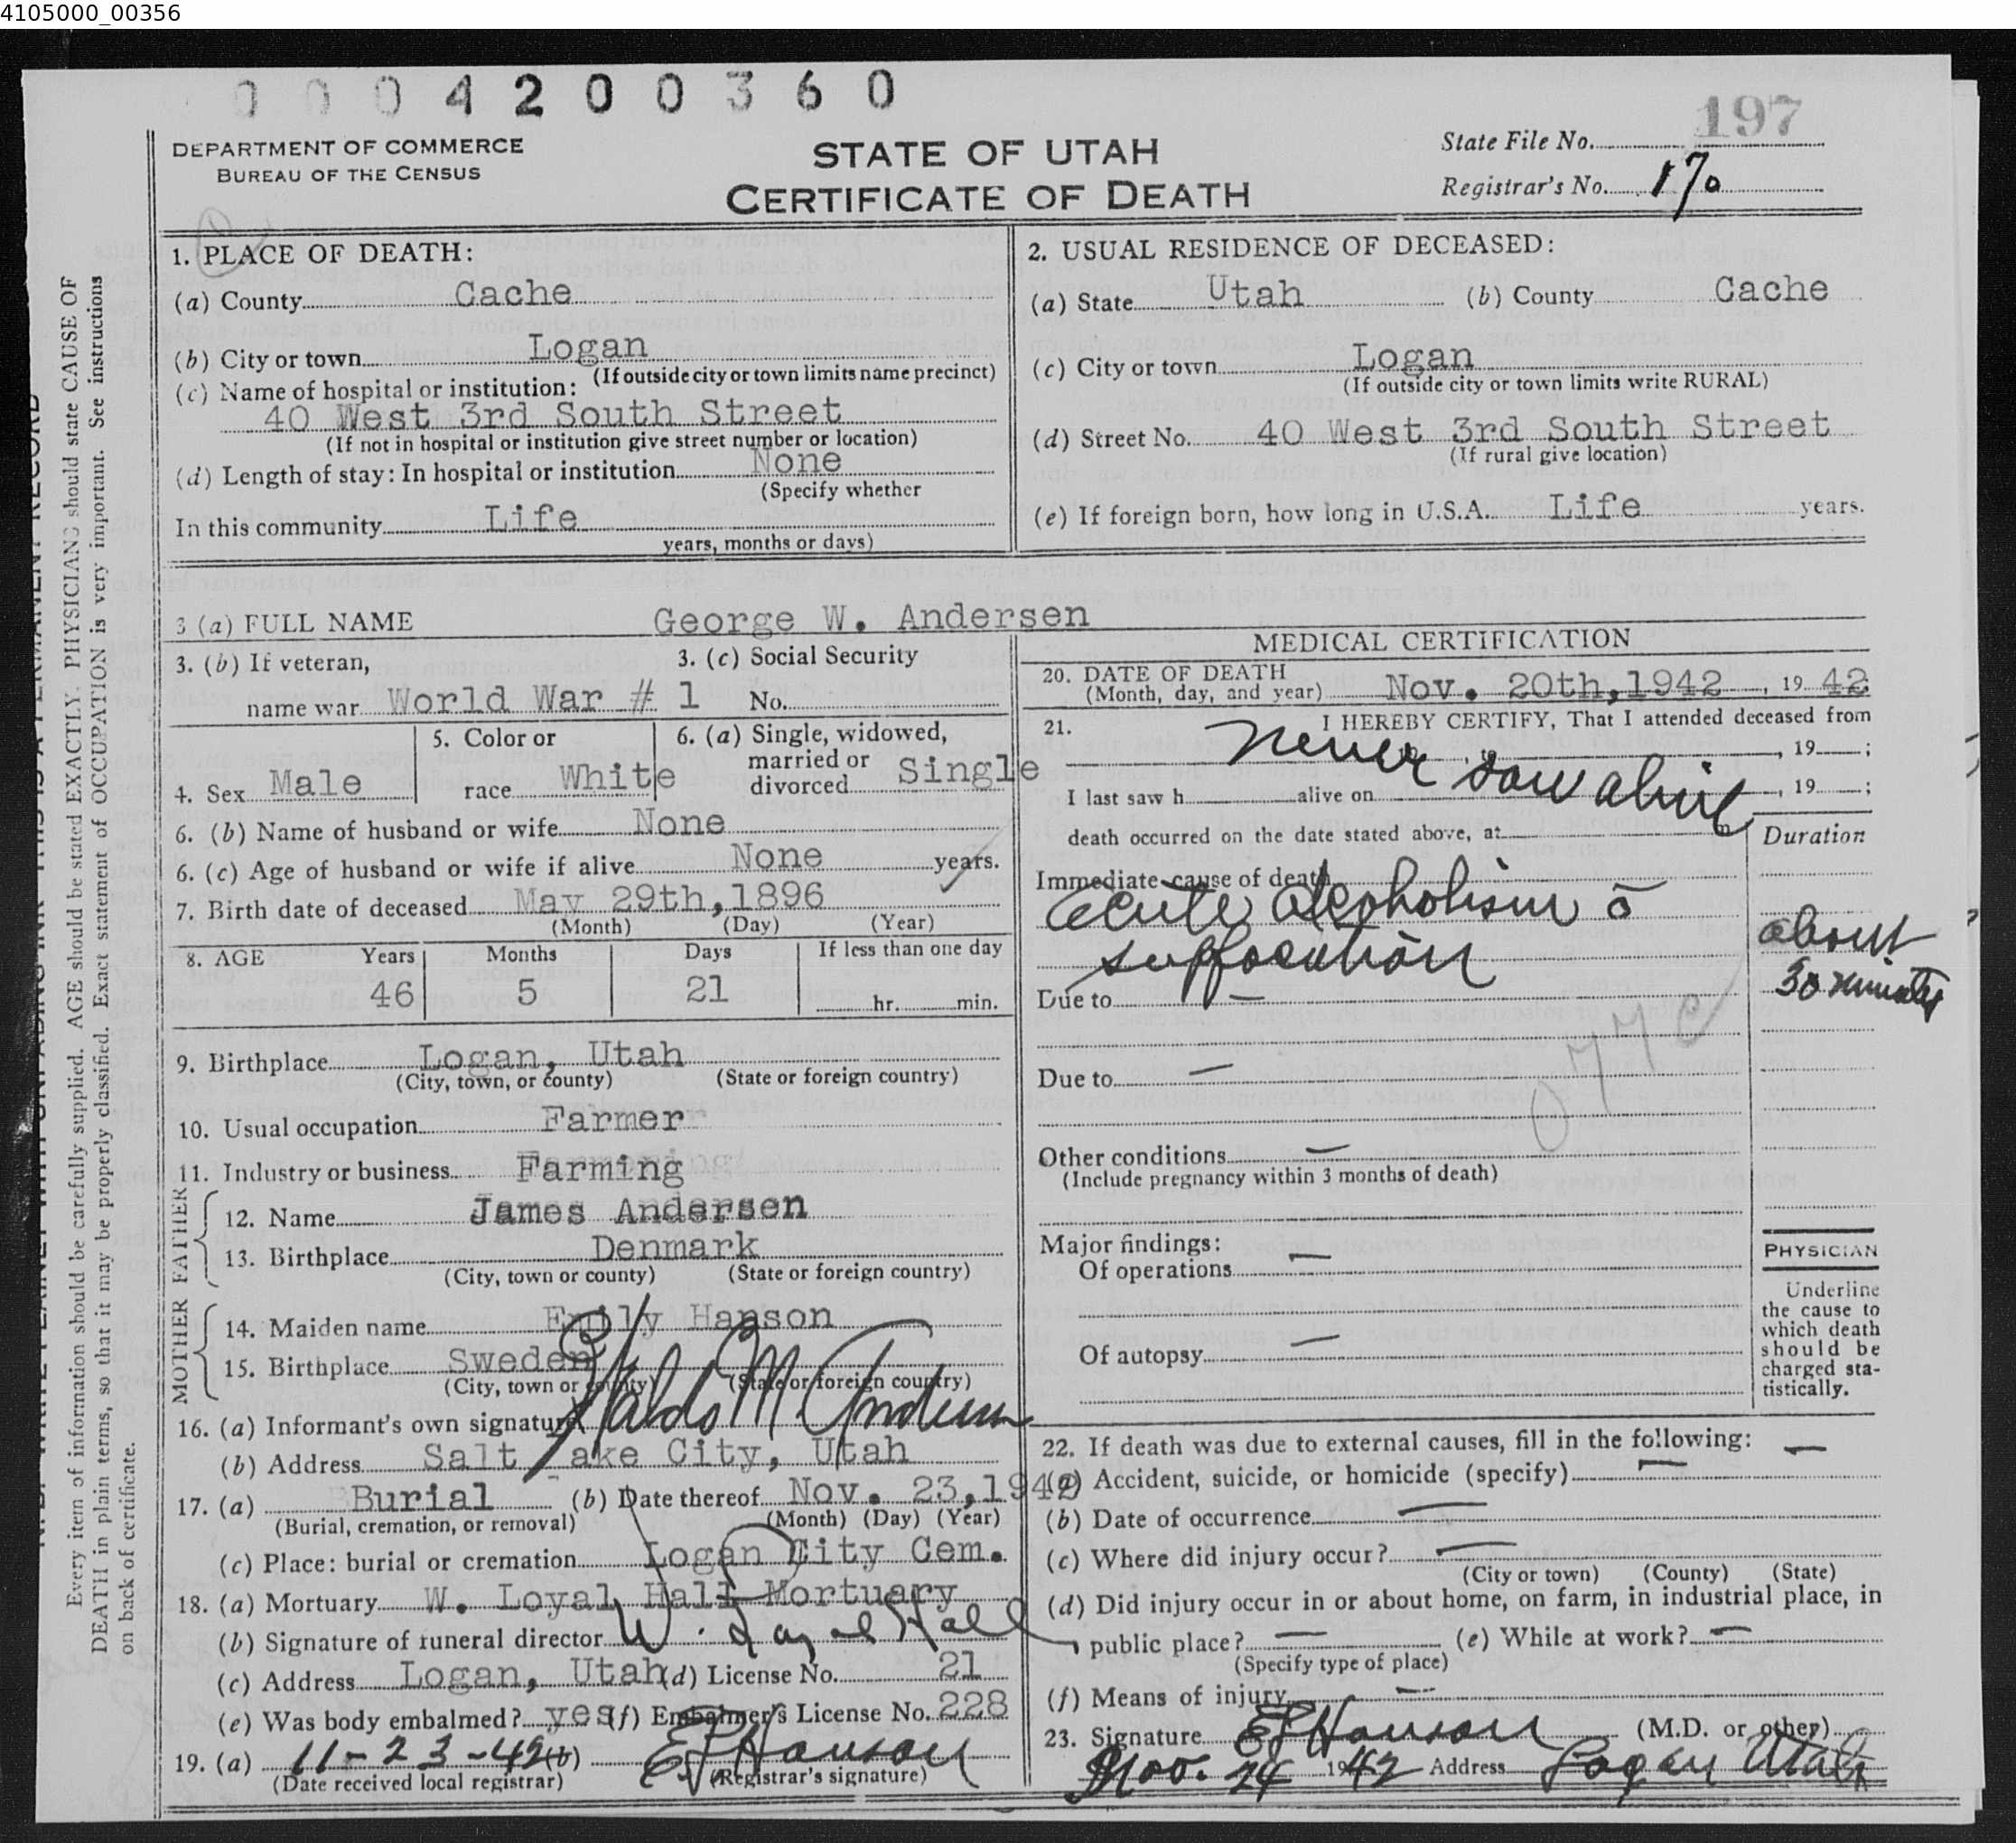 4105000_00356
0004200360
197
DEPARTMENT OF COMMERCE
BUREAU OF THE CENSUS
STATE OF UTAH
CERTIFICATE OF DEATH
State File No.
Registrar's No. 170
1. PLACE OF DEATH:
(a) County Cache
(b) City or town Logan
(If outside city or town limits name precinct)
(c) Name of hospital or institution:
40 West 3rd South Street
(If not in hospital or institution give street number or location)
(d) Length of stay: In hospital or institution None
(Specify whether
In this community Life
years, months or days)
2. USUAL RESIDENCE OF DECEASED:
(a) State Utah (b) County Cache
(c) City or town Logan
(If outside city or town limits write RURAL)
(d) Street No. 40 West 3rd South Street
(If rural give location)
(e) If foreign born, how long in U.S.A. Life years.
3 (a) FULL NAME George W. Andersen
3. (b) If veteran, 3. (c) Social Security
name war World War # 1 No.
4. Sex Male
5. Color or
race White
6. (a) Single, widowed,
married or
divorced Single
6. (b) Name of husband or wife None
6. (c) Age of husband or wife if alive None years.
7. Birth date of deceased May 29th, 1896
(Month) (Day) (Year)
8. AGE Years Months Days If less than one day
46 5 21 hr. min.
9. Birthplace Logan, Utah
(City, town, or county) (State or foreign country)
10. Usual occupation Farmer
11. Industry or business Farming
FATHER
12. Name James Andersen
13. Birthplace Denmark
(City, town or county) (State or foreign country)
MOTHER
14. Maiden name Emily Hanson
15. Birthplace Sweden
(City, town or county) (State or foreign country)
16. (a) Informant's own signature Waldo M. Andersen
(b) Address Salt Lake City, Utah
17. (a) Burial (b) Date thereof Nov. 23, 1942
(Burial, cremation, or removal) (Month) (Day) (Year)
(c) Place: burial or cremation Logan City Cem.
18. (a) Mortuary W. Loyal Hall Mortuary
(b) Signature of funeral director W. Loyal Hall
(c) Address Logan, Utah (d) License No. 21
(e) Was body embalmed? yes (f) Embalmer's License No. 228
19. (a) 11-23-42 (b) EJ Hanson
(Date received local registrar) (Registrar's signature)
MEDICAL CERTIFICATION
20. DATE OF DEATH
(Month, day, and year) Nov. 20th, 1942, 19 42
21. I HEREBY CERTIFY, That I attended deceased from
never, 19 ;
I last saw h alive on saw alive, 19 ;
death occurred on the date stated above, at m
Duration
Immediate cause of death
acute alcoholism c̄
suffocation
about
30 minutes
Due to —
Due to —
077c
Other conditions —
(Include pregnancy within 3 months of death)
Major findings:
Of operations —
Of autopsy —
PHYSICIAN
Underline
the cause to
which death
should be
charged sta-
tistically.
22. If death was due to external causes, fill in the following: —
(a) Accident, suicide, or homicide (specify) —
(b) Date of occurrence —
(c) Where did injury occur? —
(City or town) (County) (State)
(d) Did injury occur in or about home, on farm, in industrial place, in
public place? — (e) While at work? —
(Specify type of place)
(f) Means of injury —
23. Signature EJ Hanson (M.D. or other)
Nov. 24 1942 Address Logan Utah
Every item of information should be carefully supplied. AGE should be stated EXACTLY. PHYSICIANS should state CAUSE OF
DEATH in plain terms, so that it may be properly classified. Exact statement of OCCUPATION is very important. See instructions
on back of certificate.